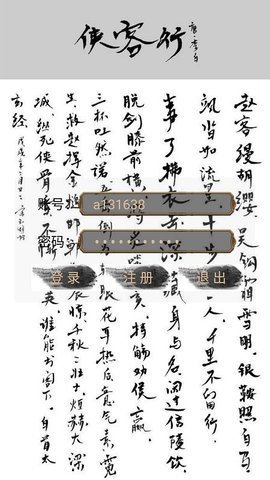 侠客行
唐·李白
赵客缦胡缨 吴钩霜雪明 银鞍照白马
飒沓如流星 十步 一人 千里不留行
事了拂衣去 深藏身与名 闲过信陵饮
脱剑膝前横 亥 持觞劝侯嬴
三杯吐然诺 五 眼花耳热后 意气素霓
生 救赵挥金 震惊 千秋二壮士 烜赫大梁
城 纵死侠骨香 不惭 英 谁能书阁下 白首太
玄经
账号
a131638
密码
登录
注册
退出